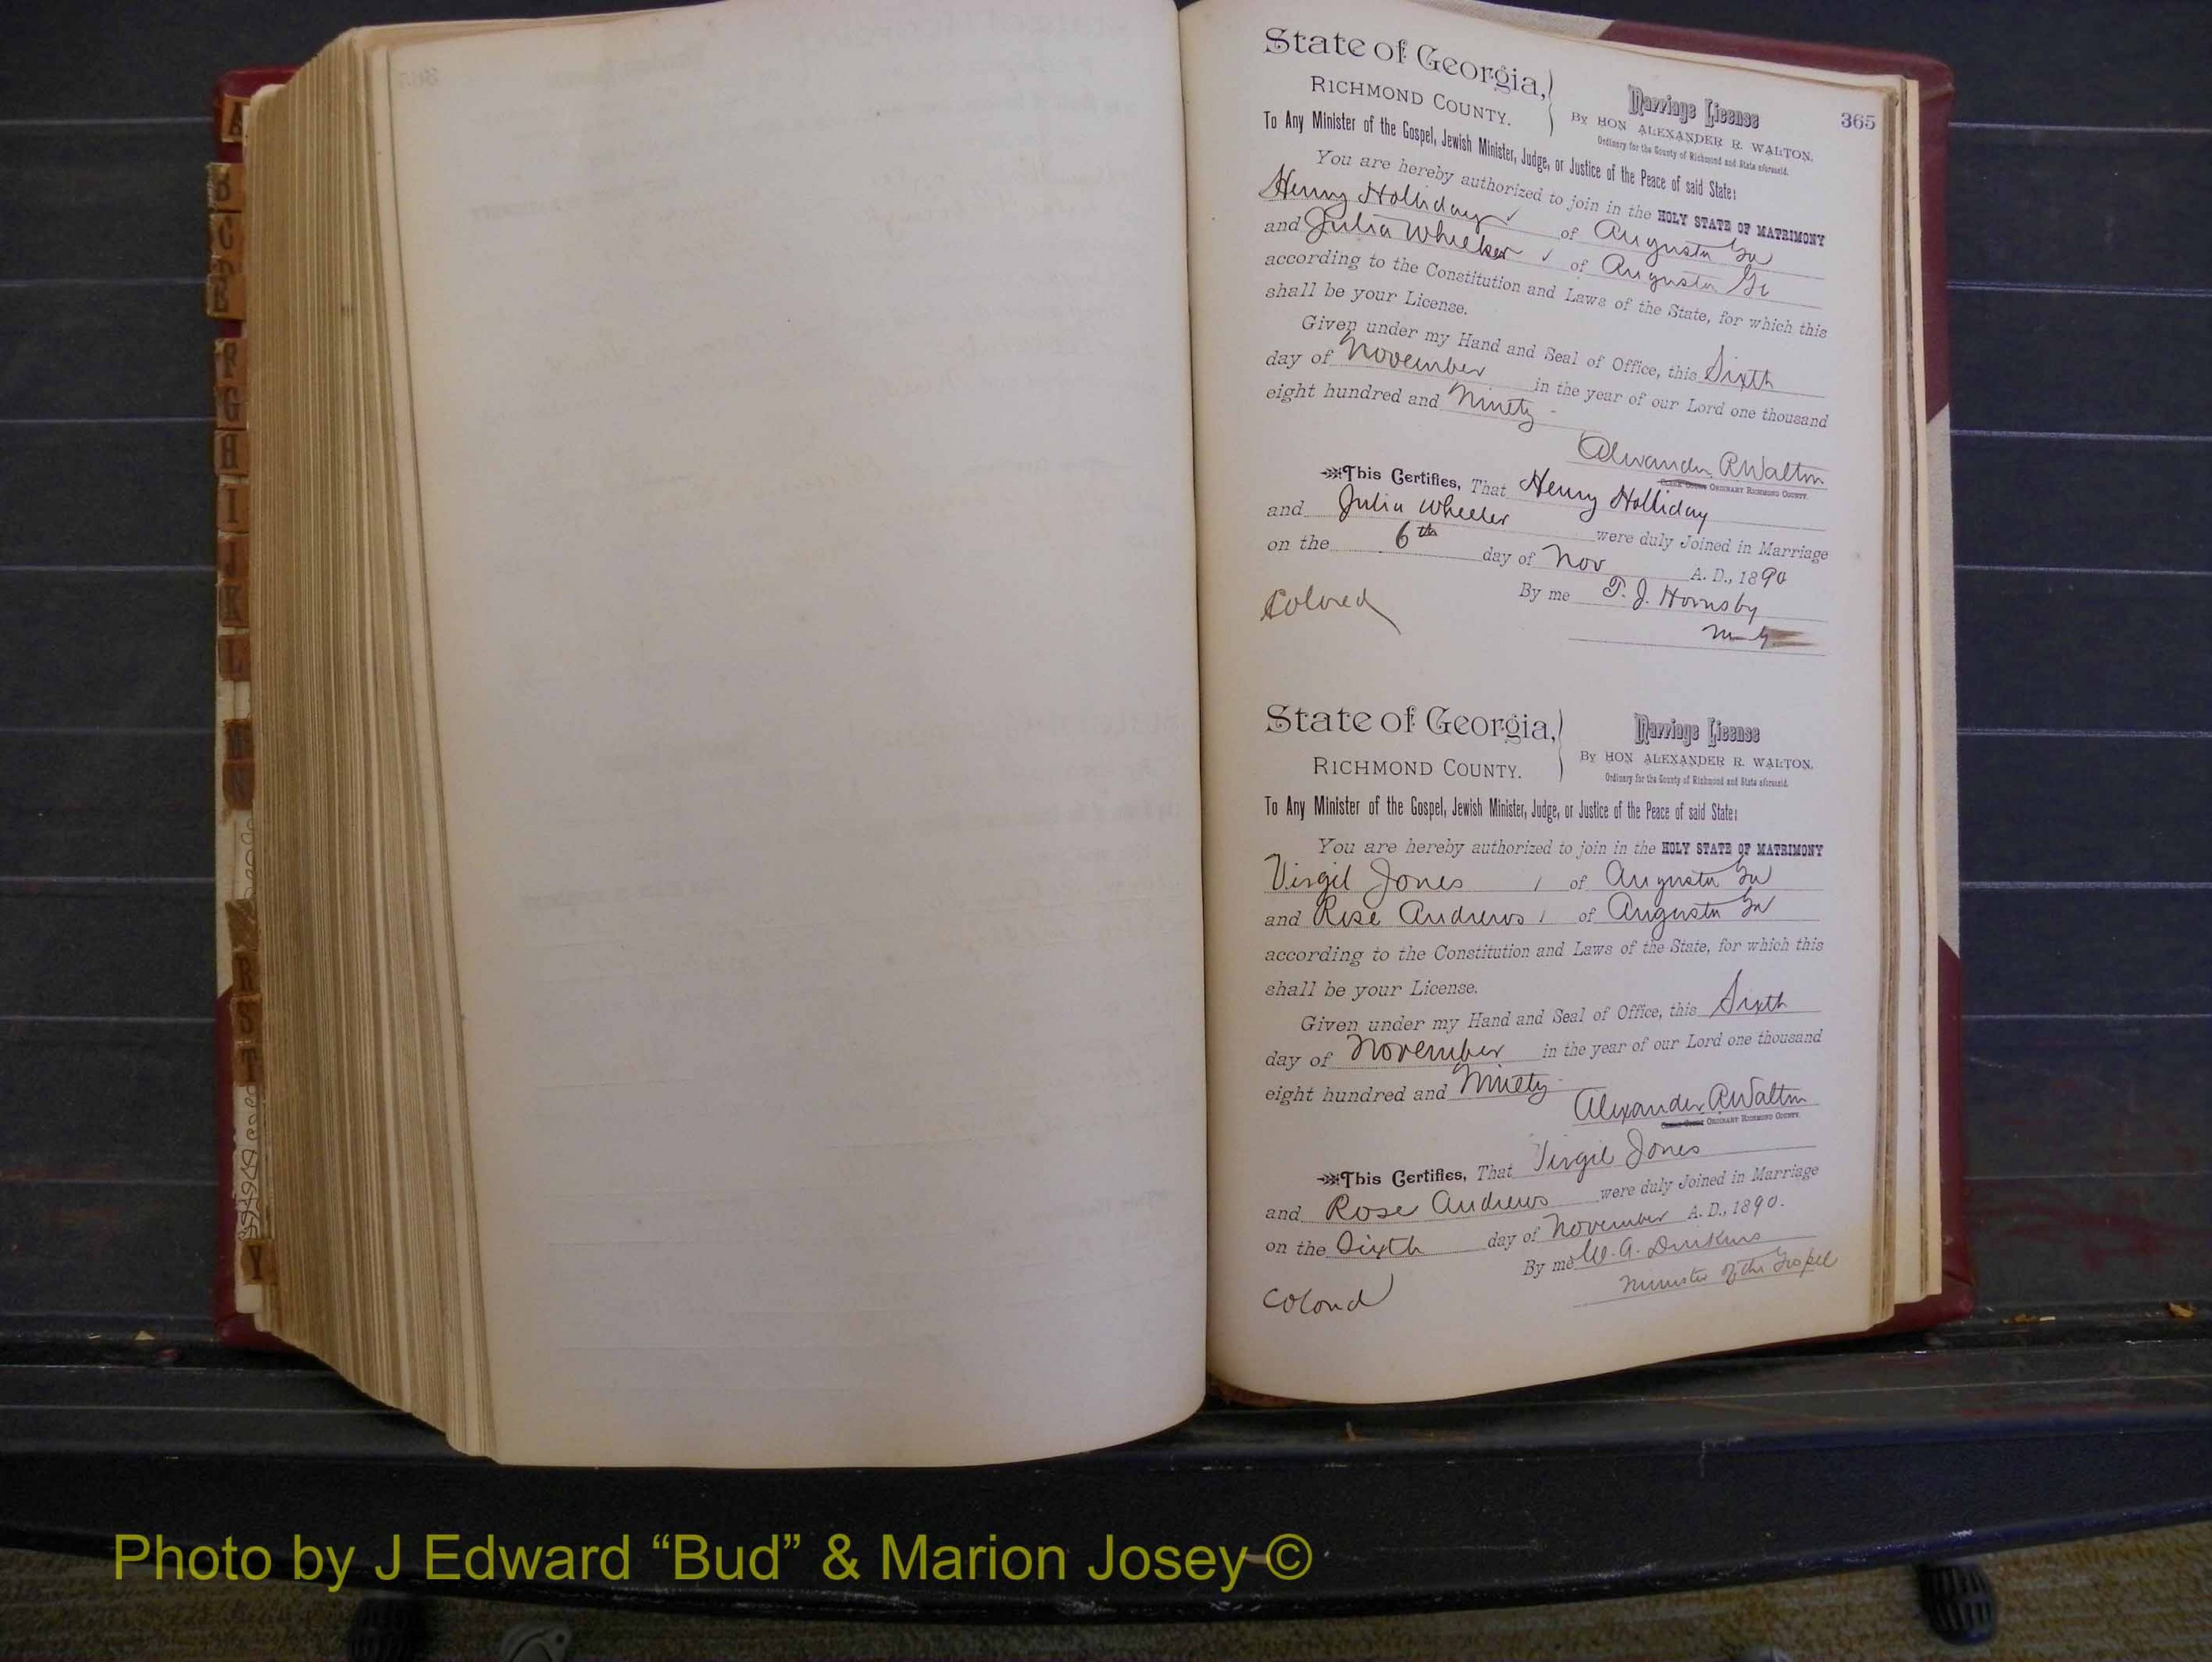 State of Georgia,
RICHMOND COUNTY.
Marriage License
By HON ALEXANDER R. WALTON,
Ordinary for the County of Richmond and State aforesaid.
365
To Any Minister of the Gospel, Jewish Minister, Judge, or Justice of the Peace of said State:
You are hereby authorized to join in the HOLY STATE OF MATRIMONY
Henry Holliday ✓ of Augusta Ga
and Julia Wheeler ✓ of Augusta Ga
according to the Constitution and Laws of the State, for which this
shall be your License.
Given under my Hand and Seal of Office, this Sixth
day of November in the year of our Lord one thousand
eight hundred and Ninety -
Alexander R Walton
ORDINARY RICHMOND COUNTY.
This Certifies, That Henry Holliday
and Julia Wheeler were duly Joined in Marriage
on the 6th day of Nov A. D., 1890
By me T. J. Hornsby
M G
Colored
State of Georgia,
RICHMOND COUNTY.
Marriage License
By HON ALEXANDER R. WALTON,
Ordinary for the County of Richmond and State aforesaid.
To Any Minister of the Gospel, Jewish Minister, Judge, or Justice of the Peace of said State:
You are hereby authorized to join in the HOLY STATE OF MATRIMONY
Virgil Jones / of Augusta Ga
and Rose Andrews / of Augusta Ga
according to the Constitution and Laws of the State, for which this
shall be your License.
Given under my Hand and Seal of Office, this Sixth
day of November in the year of our Lord one thousand
eight hundred and Ninety -
Alexander R Walton
ORDINARY RICHMOND COUNTY.
This Certifies, That Virgil Jones
and Rose Andrews were duly Joined in Marriage
on the Sixth day of November A. D., 1890.
By me W. G. Dinkins
Minister of the Gospel
Colored
A
B
C
D
E
F
G
H
I
J
K
L
M
N
R
S
T
Y
Photo by J Edward “Bud” & Marion Josey ©